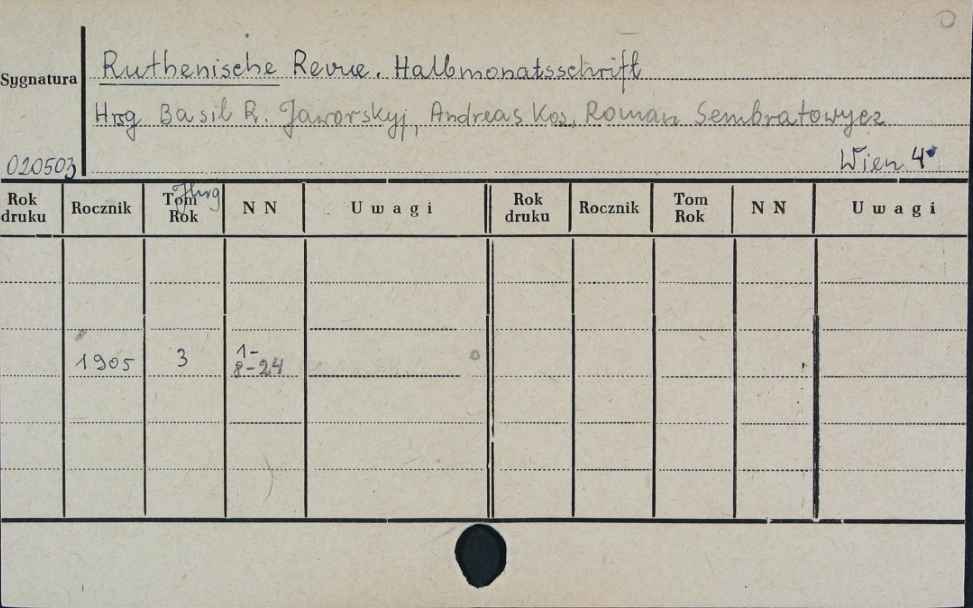 Ruthenische Revue. Halbmonatsschrift
Sygnatura
Hrsg Basil R. Jaworskyj, Andreas Kos, Roman Sembratowycz
020503
Wien 4°
Rok druku Rocznik Tom Rok Jhrg N N Uwagi Rok druku Rocznik Tom Rok N N Uwagi
1905 3 1-
8-24